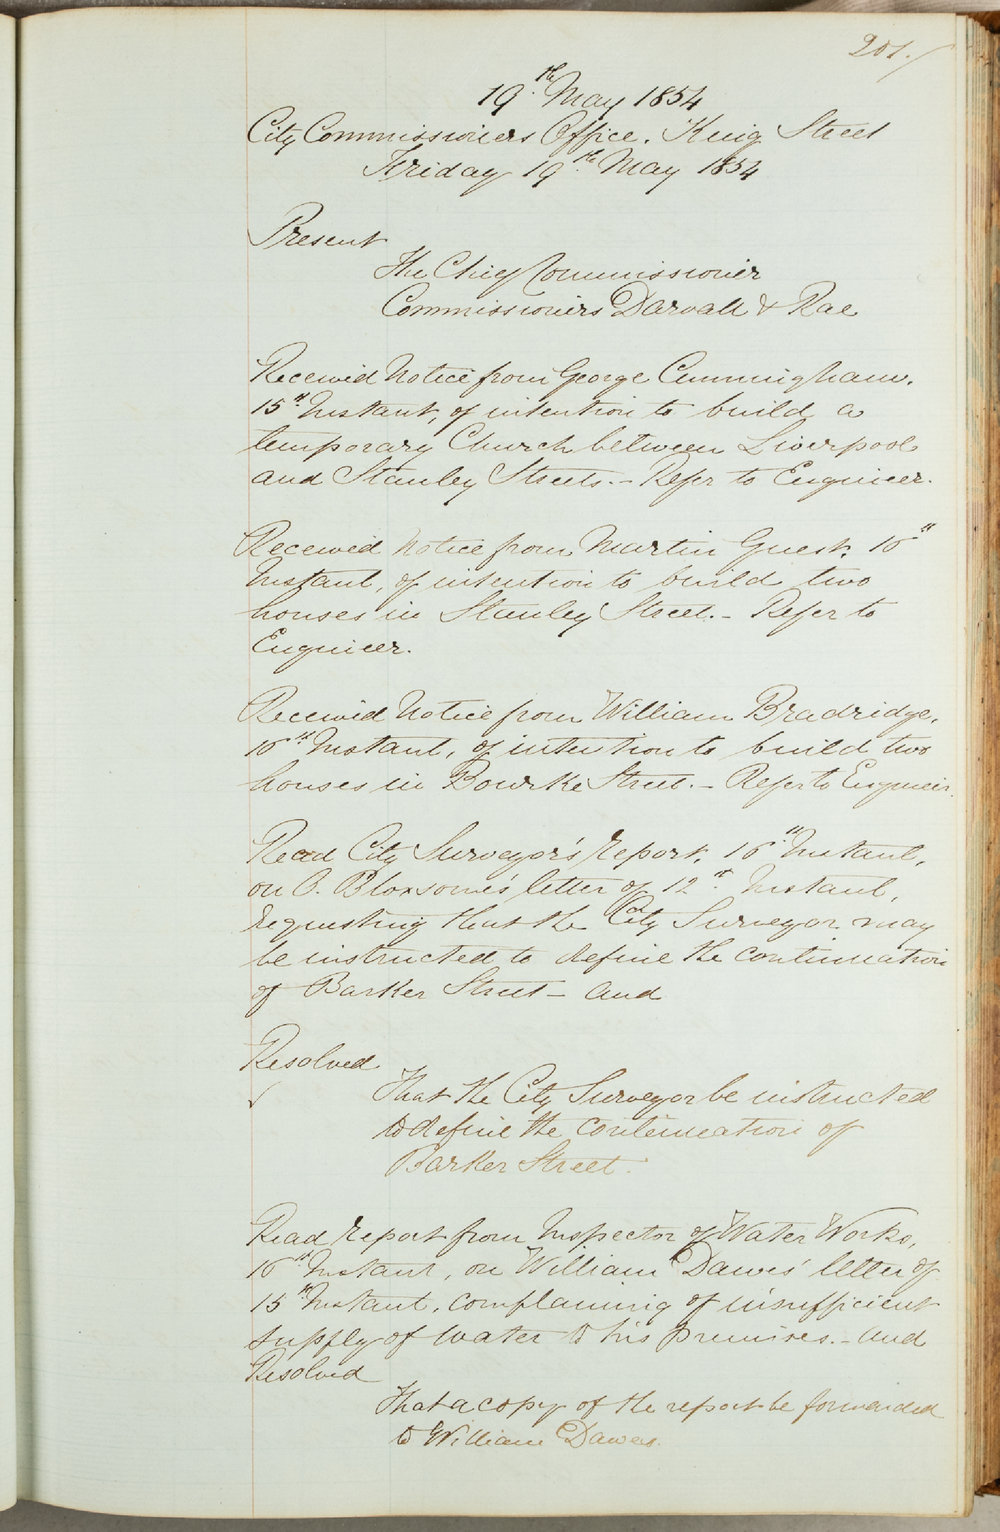 201.
19th May 1854
City Commissioners Office. King Street
Friday 19th May 1854
Present
The Chief Commissioner
Commissioners Darvall & Rae
Received Notice from George Cunningham,
15th Instant, of intention to build a
temporary Church between Liverpool
and Stanley Streets. - Refer to Engineer.
Received Notice from Martin Guest, 16th
Instant, of intention to build two
houses in Stanley Street. - Refer to
Engineer.
Received Notice from William Bradridge,
16th Instant, of intention to build two
houses in Bourke Street. - Refer to Engineer.
Read City Surveyor's report, 16th Instant,
on O. Bloxsome's letter of 12th Instant,
requesting that the City Surveyor may
be instructed to define the continuation
of Barker Street - and
Resolved
That the City Surveyor be instructed
to define the continuation of
Barker Street.
Read report from Inspector of Water Works,
16th Instant, on William Dawes' letter of
15th Instant, complaining of insufficient
supply of water to his premises. - and
Resolved
That a copy of the report be forwarded
to William Dawes.